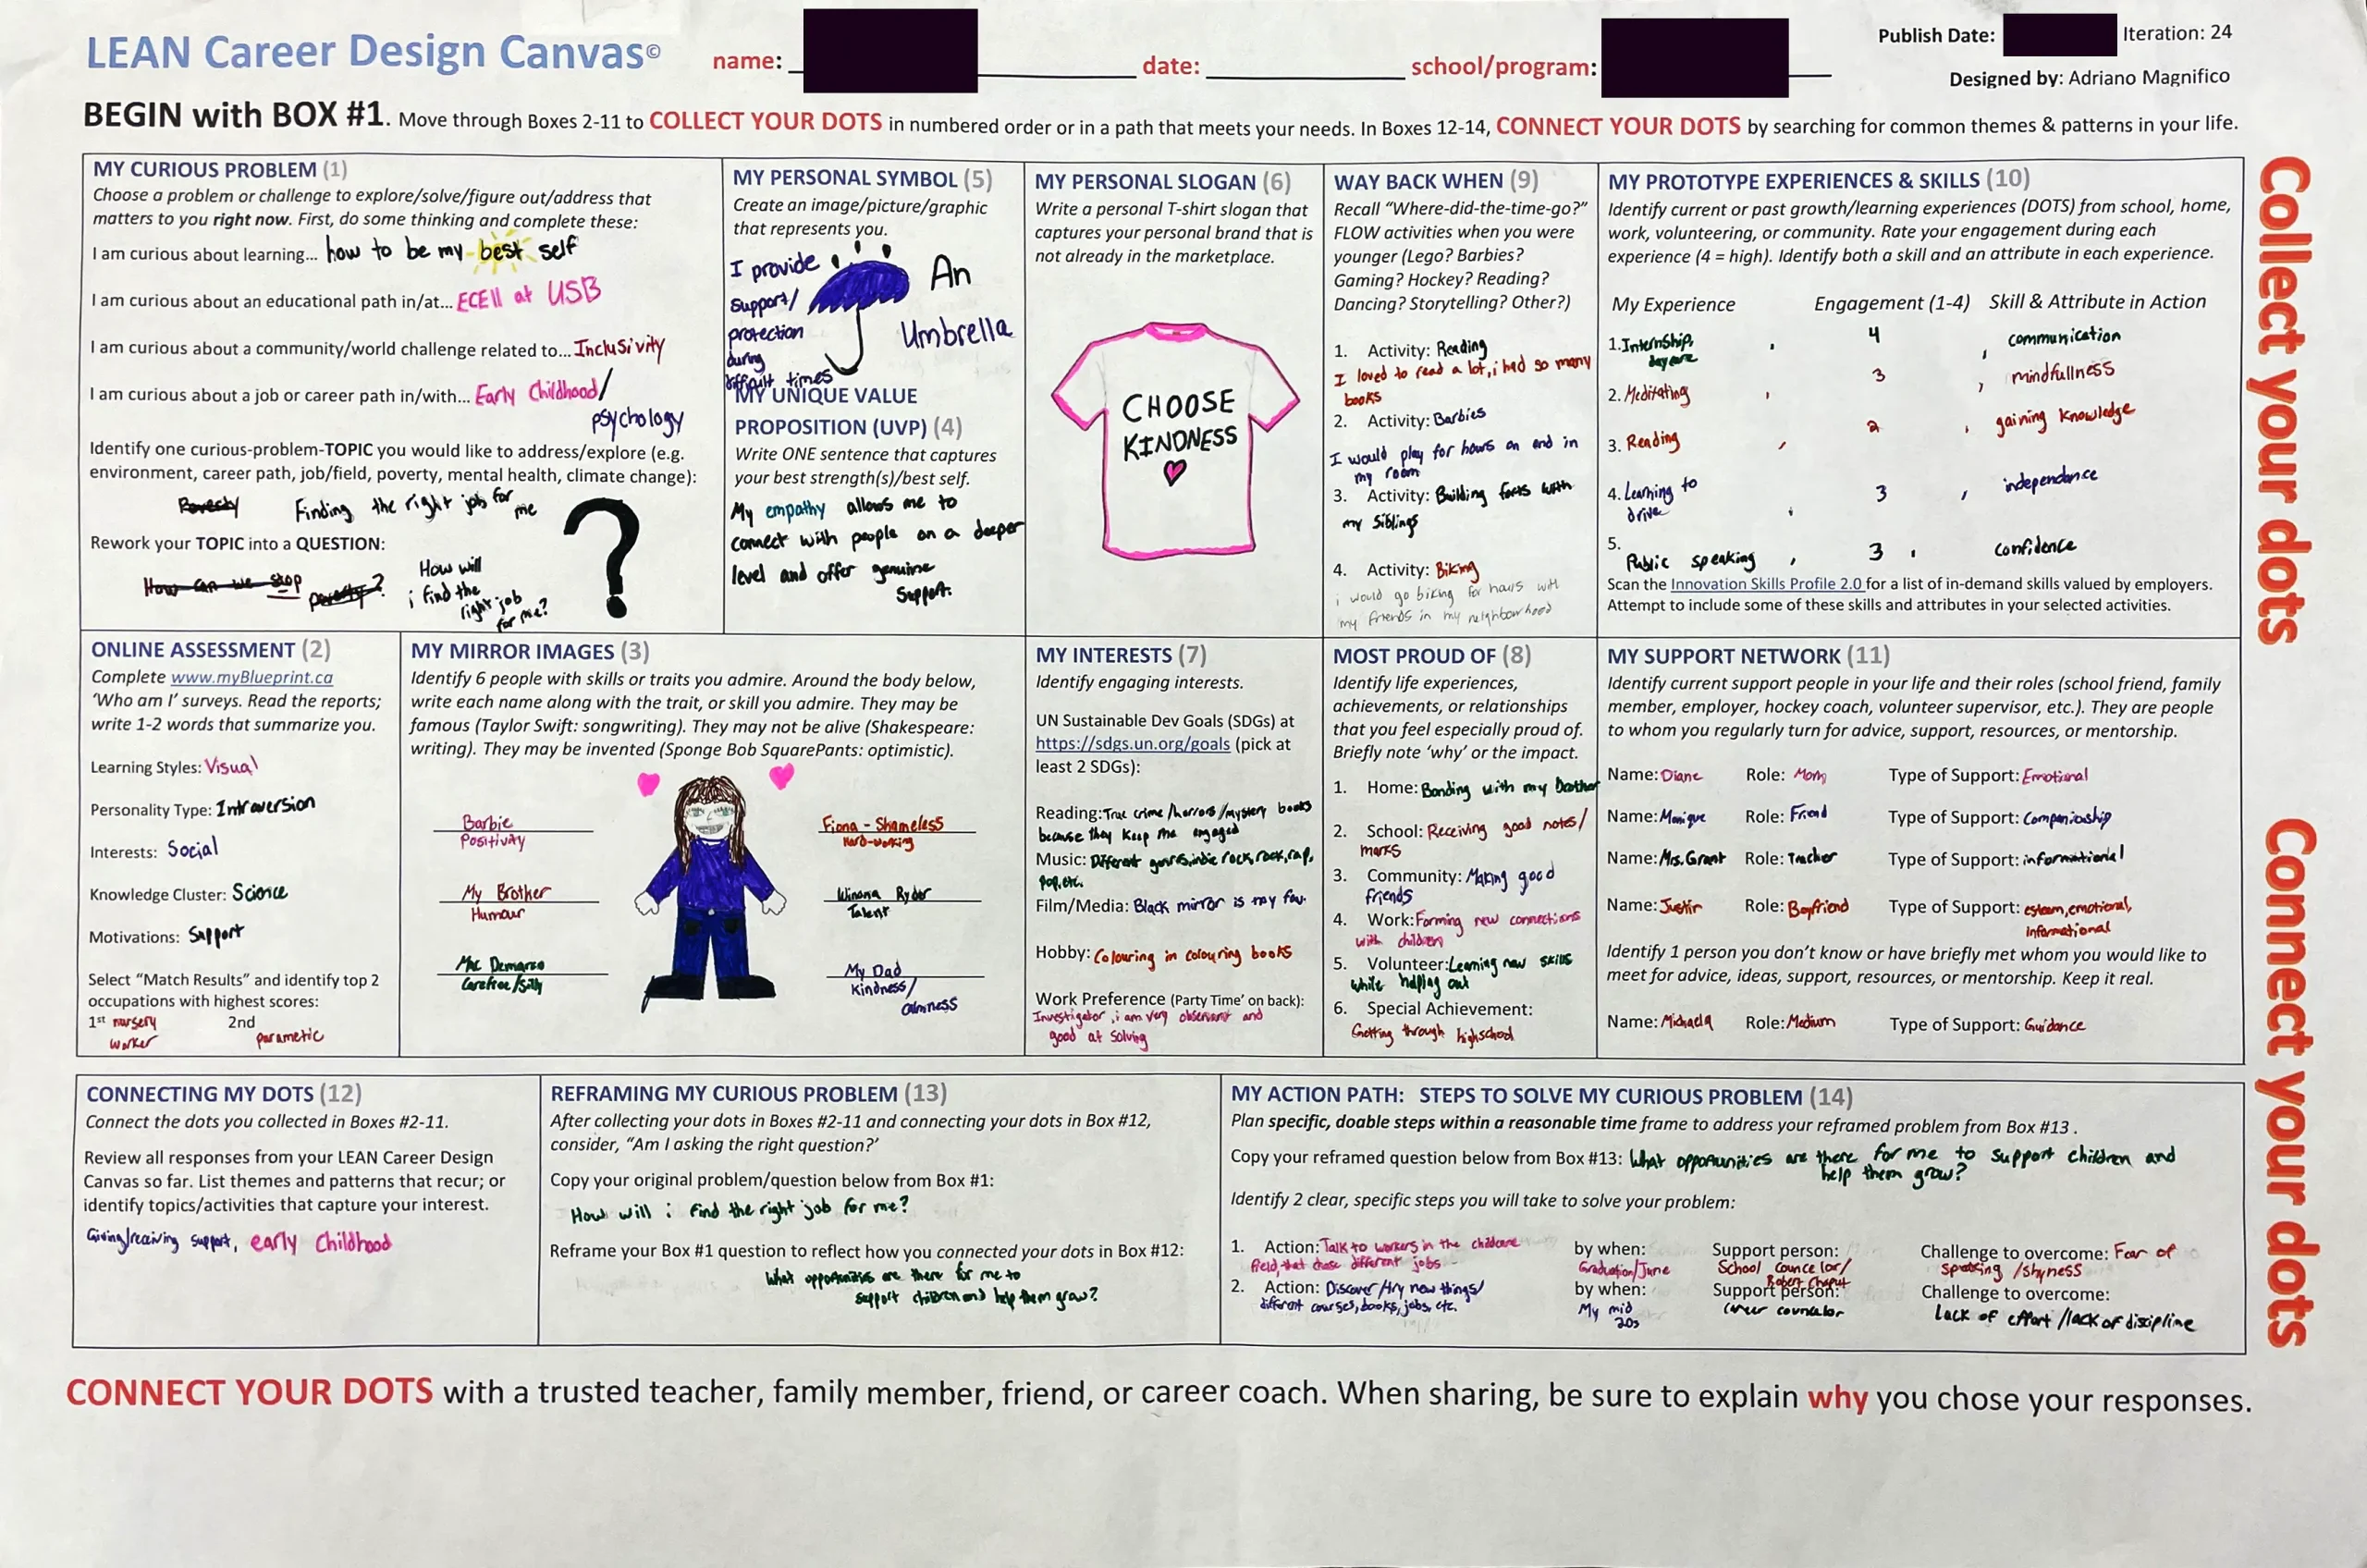 LEAN Career Design Canvas©
name:
date:
school/program:
Publish Date:
Iteration: 24
Designed by: Adriano Magnifico
BEGIN with BOX #1. Move through Boxes 2-11 to COLLECT YOUR DOTS in numbered order or in a path that meets your needs. In Boxes 12-14, CONNECT YOUR DOTS by searching for common themes & patterns in your life.
MY CURIOUS PROBLEM (1)
Choose a problem or challenge to explore/solve/figure out/address that
matters to you right now. First, do some thinking and complete these:
I am curious about learning... how to be my best self
I am curious about an educational path in/at... ECEII at USB
I am curious about a community/world challenge related to... Inclusivity
I am curious about a job or career path in/with... Early Childhood/
psychology
Identify one curious-problem-TOPIC you would like to address/explore (e.g.
environment, career path, job/field, poverty, mental health, climate change):
Poverty Finding the right job for
me
Rework your TOPIC into a QUESTION:
How can we stop
poverty?
How will
i find the
right job
for me?
?
MY PERSONAL SYMBOL (5)
Create an image/picture/graphic
that represents you.
I provide
support/
protection
during
difficult times
An
Umbrella
MY UNIQUE VALUE
PROPOSITION (UVP) (4)
Write ONE sentence that captures
your best strength(s)/best self.
My empathy allows me to
connect with people on a deeper
level and offer genuine
support.
MY PERSONAL SLOGAN (6)
Write a personal T-shirt slogan that
captures your personal brand that is
not already in the marketplace.
CHOOSE
KINDNESS
WAY BACK WHEN (9)
Recall "Where-did-the-time-go?"
FLOW activities when you were
younger (Lego? Barbies?
Gaming? Hockey? Reading?
Dancing? Storytelling? Other?)
1. Activity: Reading
I loved to read a lot, i had so many
books
2. Activity: Barbies
I would play for hours on end in
my room
3. Activity: Building forts with
my siblings
4. Activity: Biking
i would go biking for hours with
my friends in my neighbourhood
MY PROTOTYPE EXPERIENCES & SKILLS (10)
Identify current or past growth/learning experiences (DOTS) from school, home,
work, volunteering, or community. Rate your engagement during each
experience (4 = high). Identify both a skill and an attribute in each experience.
My Experience Engagement (1-4) Skill & Attribute in Action
1. Internship, daycare , 4 , communication
2. Meditating , 3 , mindfullness
3. Reading , 2 , gaining knowledge
4. Learning to drive , 3 , independance
5. Public speaking , 3 , confidence
Scan the Innovation Skills Profile 2.0 for a list of in-demand skills valued by employers.
Attempt to include some of these skills and attributes in your selected activities.
ONLINE ASSESSMENT (2)
Complete www.myBlueprint.ca
'Who am I' surveys. Read the reports;
write 1-2 words that summarize you.
Learning Styles: Visual
Personality Type: Intraversion
Interests: Social
Knowledge Cluster: Science
Motivations: Support
Select "Match Results" and identify top 2
occupations with highest scores:
1st nursery worker 2nd parametic
MY MIRROR IMAGES (3)
Identify 6 people with skills or traits you admire. Around the body below,
write each name along with the trait, or skill you admire. They may be
famous (Taylor Swift: songwriting). They may not be alive (Shakespeare:
writing). They may be invented (Sponge Bob SquarePants: optimistic).
Barbie
Positivity
My Brother
Humour
Mac Demarco
Carefree/Silly
Fiona - Shameless
Hard-working
Winona Ryder
Talent
My Dad
Kindness/
calmness
MY INTERESTS (7)
Identify engaging interests.
UN Sustainable Dev Goals (SDGs) at
https://sdgs.un.org/goals (pick at
least 2 SDGs):
Reading: True crime/horrors/mystery books
because they keep me engaged
Music: Different genres, indie rock, rock, rap,
pop, etc.
Film/Media: Black mirror is my fav.
Hobby: Colouring in colouring books
Work Preference (Party Time' on back):
Investigator, i am very observant and
good at solving
MOST PROUD OF (8)
Identify life experiences,
achievements, or relationships
that you feel especially proud of.
Briefly note 'why' or the impact.
1. Home: Bonding with my brother
2. School: Receiving good notes/
marks
3. Community: Making good
friends
4. Work: Forming new connections
with children
5. Volunteer: Learning new skills
while helping out
6. Special Achievement:
Getting through highschool
MY SUPPORT NETWORK (11)
Identify current support people in your life and their roles (school friend, family
member, employer, hockey coach, volunteer supervisor, etc.). They are people
to whom you regularly turn for advice, support, resources, or mentorship.
Name: Diane Role: Mom Type of Support: Emotional
Name: Monique Role: Friend Type of Support: Companionship
Name: Mrs. Grant Role: Teacher Type of Support: informational
Name: Justin Role: Boyfriend Type of Support: esteem, emotional,
informational
Identify 1 person you don't know or have briefly met whom you would like to
meet for advice, ideas, support, resources, or mentorship. Keep it real.
Name: Michaela Role: Medium Type of Support: Guidance
CONNECTING MY DOTS (12)
Connect the dots you collected in Boxes #2-11.
Review all responses from your LEAN Career Design
Canvas so far. List themes and patterns that recur; or
identify topics/activities that capture your interest.
Giving/receiving support, early Childhood
REFRAMING MY CURIOUS PROBLEM (13)
After collecting your dots in Boxes #2-11 and connecting your dots in Box #12,
consider, "Am I asking the right question?'
Copy your original problem/question below from Box #1:
How will i find the right job for me?
Reframe your Box #1 question to reflect how you connected your dots in Box #12:
What opportunities are there for me to
support children and help them grow?
MY ACTION PATH: STEPS TO SOLVE MY CURIOUS PROBLEM (14)
Plan specific, doable steps within a reasonable time frame to address your reframed problem from Box #13 .
Copy your reframed question below from Box #13: What opportunities are there for me to support children and
help them grow?
Identify 2 clear, specific steps you will take to solve your problem:
1. Action: Talk to workers in the childcare
field, that chose different jobs
by when:
Graduation/June
Support person:
School Councelor/
Robert Chaput
Challenge to overcome: Fear of
speaking/shyness
2. Action: Discover/try new things/
different courses, books, jobs, etc.
by when:
My mid
20s
Support person:
career councelor
Challenge to overcome:
Lack of effort/lack of discipline
Collect your dots
Connect your dots
CONNECT YOUR DOTS with a trusted teacher, family member, friend, or career coach. When sharing, be sure to explain why you chose your responses.